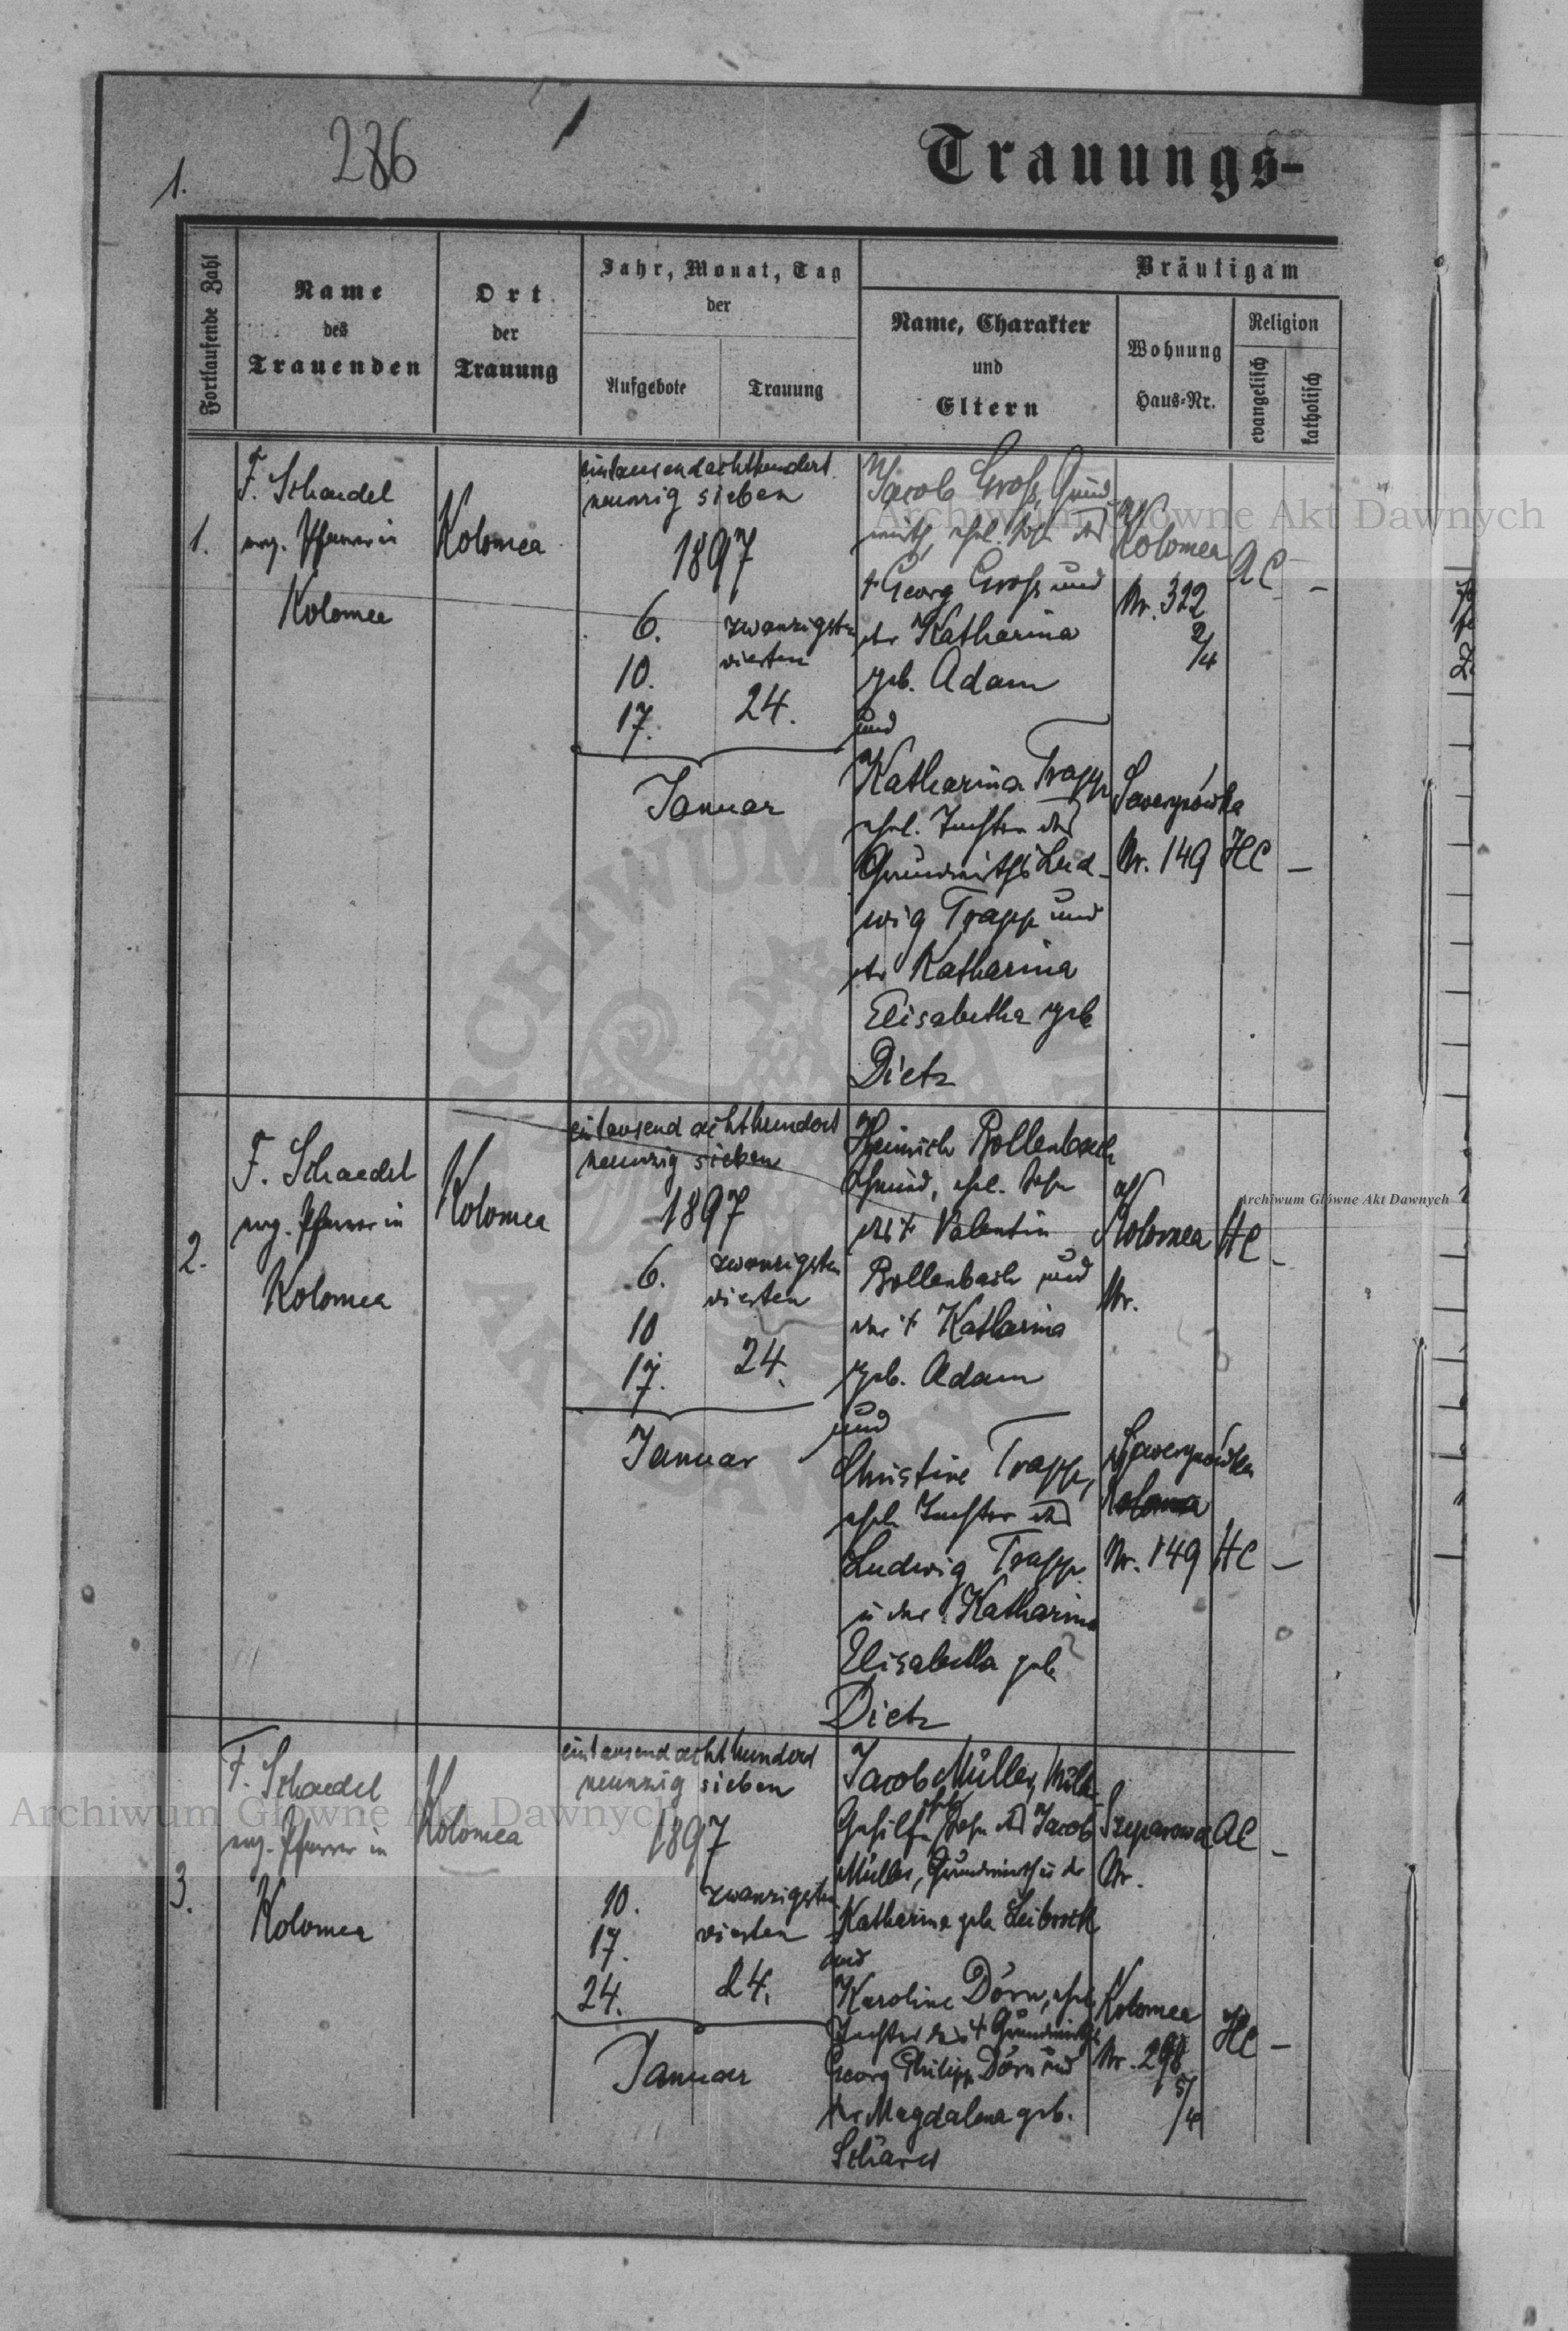 1.
286
Trauungs-
Fortlaufende Zahl
Name
des
Trauenden
Ort
der
Trauung
Jahr, Monat, Tag
der
Aufgebote
Trauung
Bräutigam
Name, Charakter
und
Eltern
Wohnung
Haus-Nr.
Religion
evangelisch
katholisch
1.
F. Schaedel
evg. Pfarrer in
Kolomea
Kolomea
eintausendachthundert
neunzig sieben
1897
6.
10.
17.
zwanzigsten
vierten
24.
Januar
Jacob Groß, Grund-
wirth, ehel. Sohn des
† Georg Groß und
der Katharina
geb. Adam
und
Katharina Trapp
ehel. Tochter des
Grundwirths Lud-
wig Trapp und
der Katharina
Elisabetha geb
Dietz
Kolomea
Nr. 322
2/4
AC
–
Sewerynówka
Nr. 149
HC
–
2.
F. Schaedel
evg. Pfarrer in
Kolomea
Kolomea
eintausend achthundert
neunzig sieben
1897
6.
10
17.
zwanzigsten
vierten
24.
Januar
Heinrich Rollenbach
Schmied, ehel. Sohn
des † Valentin
Rollenbach und
der † Katharina
geb. Adam
und
Christine Trapp,
ehel. Tochter des
Ludwig Trapp
u der Katharina
Elisabetha geb
Dietz
Kolomea
Nr.
HC
–
Sewerynówka
Kolomea
Nr. 149
HC
–
3.
F. Schaedel
evg. Pfarrer in
Kolomea
Kolomea
eintausend achthundert
neunzig sieben
1897
10.
17.
24.
zwanzigsten
vierten
24.
Januar
Jacob Müller,
Gehilfe, Sohn des Jacob
Müller, Grundwirth u der
Katharina geb
und
Karoline Dörn, ehel
Tochter des † Grundwirths
Georg Philipp Dörn und
der Magdalena geb.
Szeparowce
Nr.
AC
–
Kolomea
Nr. 298
5/4
HC
–
Archiwum Główne Akt Dawnych
Archiwum Główne Akt Dawnych
Archiwum Główne Akt Dawnych
ARCHIWUM GŁÓWNE AKT DAWNYCH